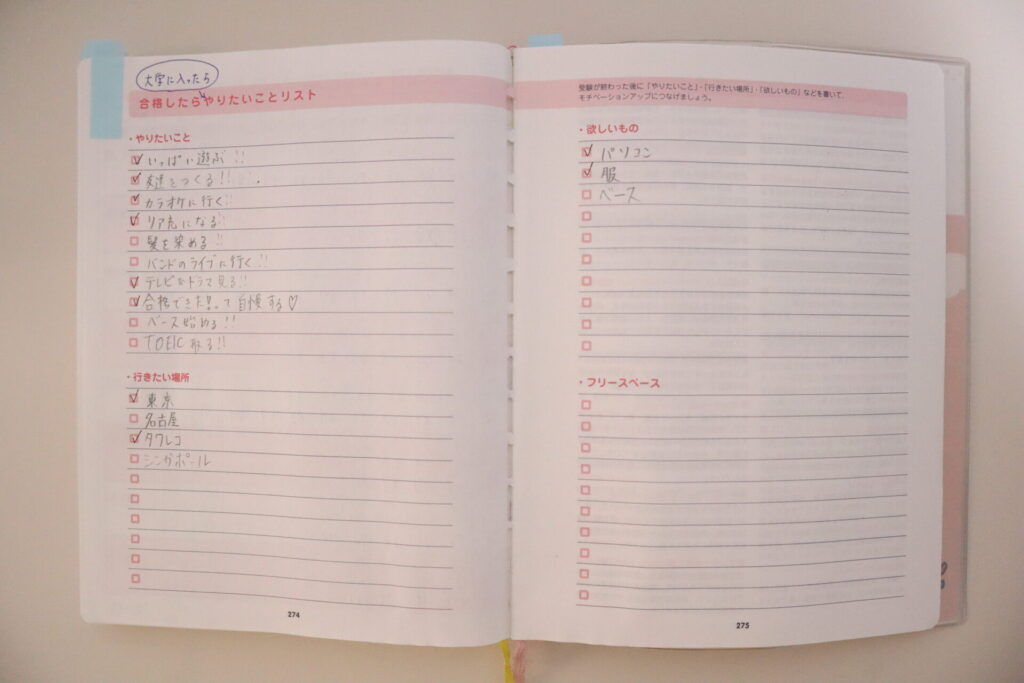 大学に入ったら
合格したらやりたいことリスト
・やりたいこと
いっぱい遊ぶ!!
友達をつくる!!
カラオケに行く!!
リア充になる!!
髪を染める!!
バンドのライブに行く!!
テレビもドラマも見る!!
合格できた!!って自慢する♡
ベース始める!!
TOEIC取る!!
・行きたい場所
東京
名古屋
タワレコ
シンガポール
274
受験が終わった後に「やりたいこと」・「行きたい場所」・「欲しいもの」などを書いて、
モチベーションアップにつなげましょう。
・欲しいもの
パソコン
服
ベース
・フリースペース
275